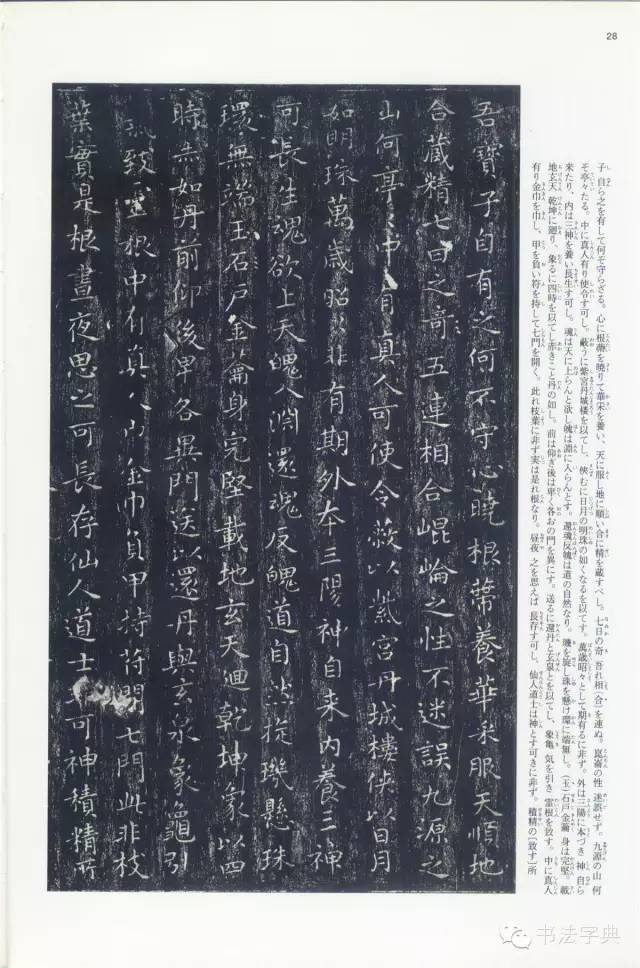 28
子 自ら之を有して何ぞ守らざる。心に根蔕を曉りて華采を養い、天に服し地に順い合に精を藏すべし。七日の奇 吾れ相〔合〕を連ぬ。崑崙の性 迷誤せず。九源の山 何
ぞ亭々たる。中に真人有り使令す可し。蔽うに紫宮丹城樓を以てし、俠むに日月の明珠の如くなるを以てす。萬歲昭々として期有るに非ず。外は三陽に本づき 神自ら
来たり、内は三神を養い長生す可し。魂は天に上らんと欲し魄は淵に入らんとす。還魂反魄は道の自然なり。璣を旋し珠を懸け環に端無し。（玉）石戸金籥 身は完堅。載
地玄天 乾坤に迴り、象るに四時を以てし赤きこと丹の如し。前は仰ぎ後は卑く各おの門を異にす。送るに還丹と玄泉とを以てし、象龜 気を引き 霊根を致す。中に真人
有り金巾を巾し、甲を負い符を持して七門を開く。此れ枝葉に非ず実は是れ根なり。昼夜 之を思えば 長存す可し。仙人道士は神とす可きに非ず。積精の〔致す〕所
吾寶子自有之何不守心曉根蔕養華采服天順地
合藏精七日之奇五連相合崐崘之性不迷誤九源之
山何亭亭中有真人可使令蔽以紫宮丹城樓俠以日月
如明珠萬歲昭昭非有期外本三陽神自来內養三神
可長生魂欲上天魄入淵還魂反魄道自然旋璣懸珠
環無端玉石戶金籥身完堅載地玄天迴乾坤象以四
時赤如丹前仰後卑各異門送以還丹與玄泉象龜引
氣致靈根中有真人巾金巾負甲持符開七門此非枝
葉實是根晝夜思之可長存仙人道士非可神積精所
书法字典